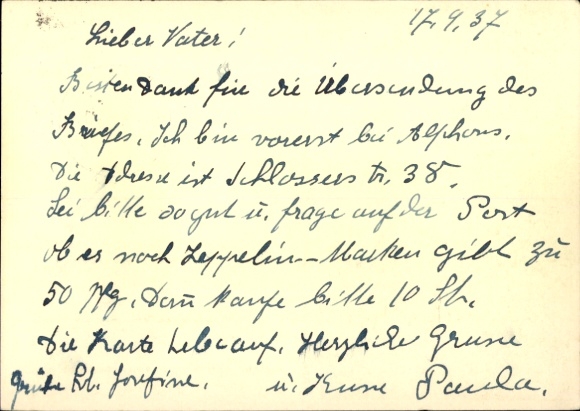 17.9.37
Lieber Vater!
Besten Dank für die Übersendung des
Briefes. Ich bin vorerst bei Alphons.
Die Adresse ist Schlosserstr. 38.
Sei bitte so gut u. frage auf der Post
ob es noch Zeppelin-Marken gibt zu
50 Pfg. Dann kaufe bitte 10 St.
Die Karte hebe auf. Herzliche Grüsse
Grüße Josefine. u. Küsse Paula.